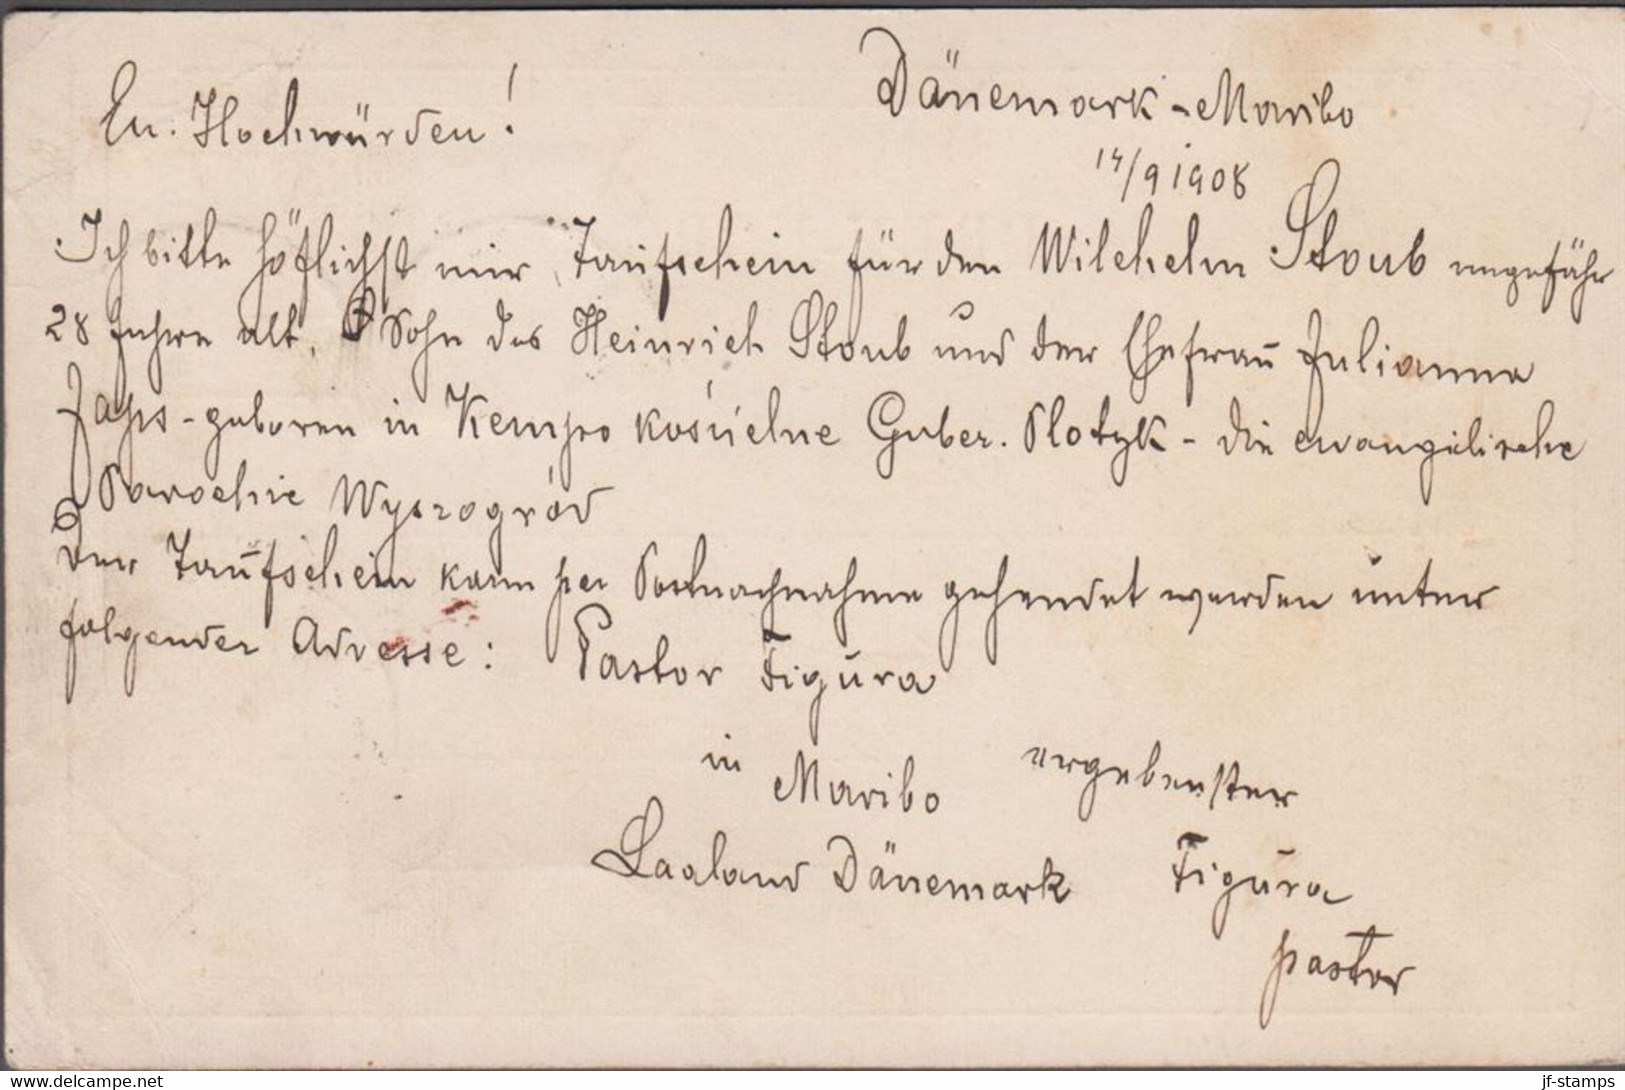 Dänemark - Maribo
Eu. Hochwürden!
14/9 1908
Ich bitte höflichst mir, Taufschein für den Wilehelm Staub ungefähr
28 Jahre alt, Sohn des Heinrich Staub und der Ehefrau Julianna
Zaps - geboren in Kempo kościelne Guber. Plotzk - die evangelische
Parochie Wyszogród
Der Taufschein kann per Postnachnahme gesendet werden unter
folgender Adresse: Pastor Figura
in Maribo ergebenster
Laaland Dänemark Figura
pastor
www.delcampe.net
jf-stamps